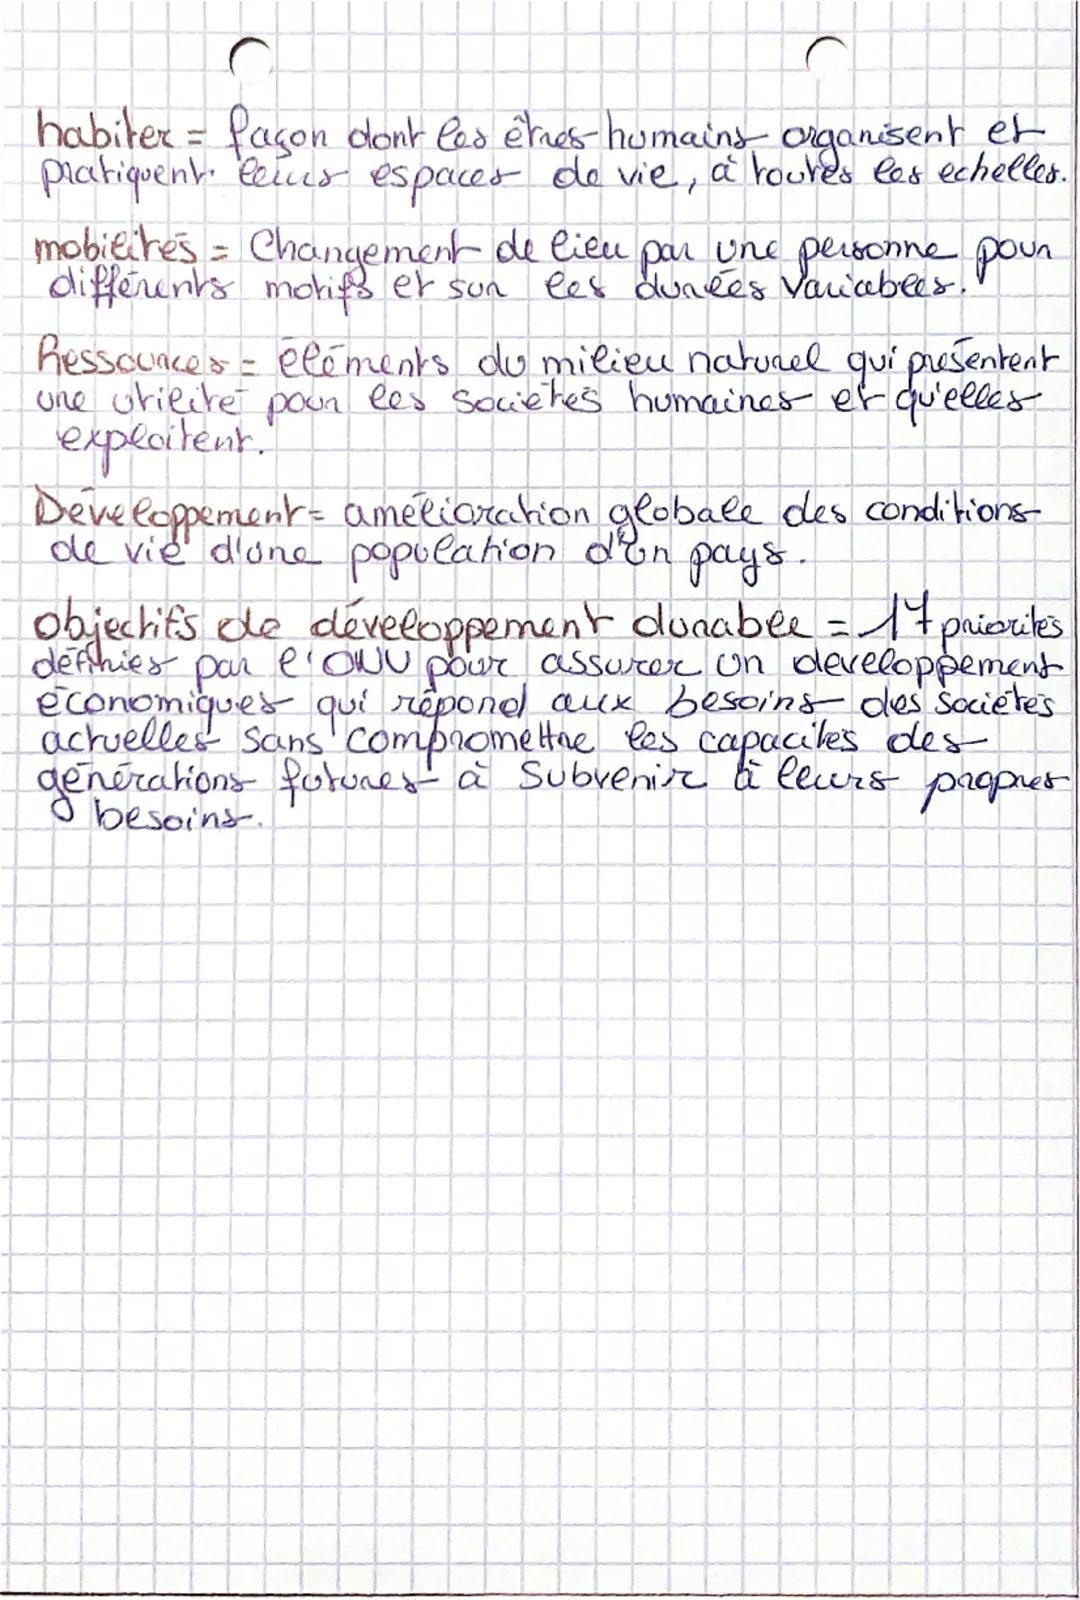 habiter = façon dont les êtres humains organisent et
pratiquent leurs espaces de vie, à toutes les echelles.
mobilités = Changement de lieu par une personne pour
différents motifs et sur les durées variables.
Ressources = éléments du milieu naturel qui présentent
une utilité pour les sociétés humaines et qu'elles
exploitent.
Développement = amélioration globale des conditions
de vie d'une population d'un pays.
objectifs de développement durable = 17 priorités
définies par l'ONU pour assurer un developpement
économiques qui répond aux besoins des sociétés
actuelles sans compromettre les capacités des
générations futures à Subvenir à leurs propres
besoins.